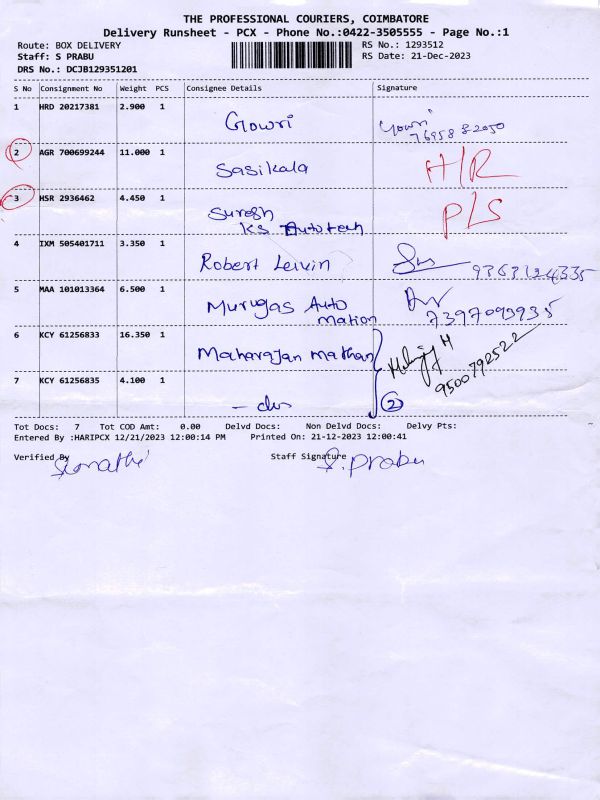 THE PROFESSIONAL COURIERS, COIMBATORE
Delivery Runsheet - PCX - Phone No.:0422-3505555 - Page No.:1
Route: BOX DELIVERY RS No.: 1293512
Staff: S PRABU RS Date: 21-Dec-2023
DRS No.: DCJB129351201
S No Consignment No Weight PCS Consignee Details Signature
1 HRD 20217381 2.900 1 Gowri Gowri
7695882050
2 AGR 700699244 11.000 1 Sasikala H/R
3 HSR 2936462 4.450 1 Suresh P/S
KS Autotech
4 IXM 505401711 3.350 1 Robert Leivin 9363124335
5 MAA 101013364 6.500 1 Murugas Auto
mation 7397093935
6 KCY 61256833 16.350 1 Maharajan Mathan
9500792522
7 KCY 61256835 4.100 1 - do 2
Tot Docs: 7 Tot COD Amt: 0.00 Delvd Docs: Non Delvd Docs: Delvy Pts:
Entered By :HARIPCX 12/21/2023 12:00:14 PM Printed On: 21-12-2023 12:00:41
Verified By Staff Signature S. Prabu